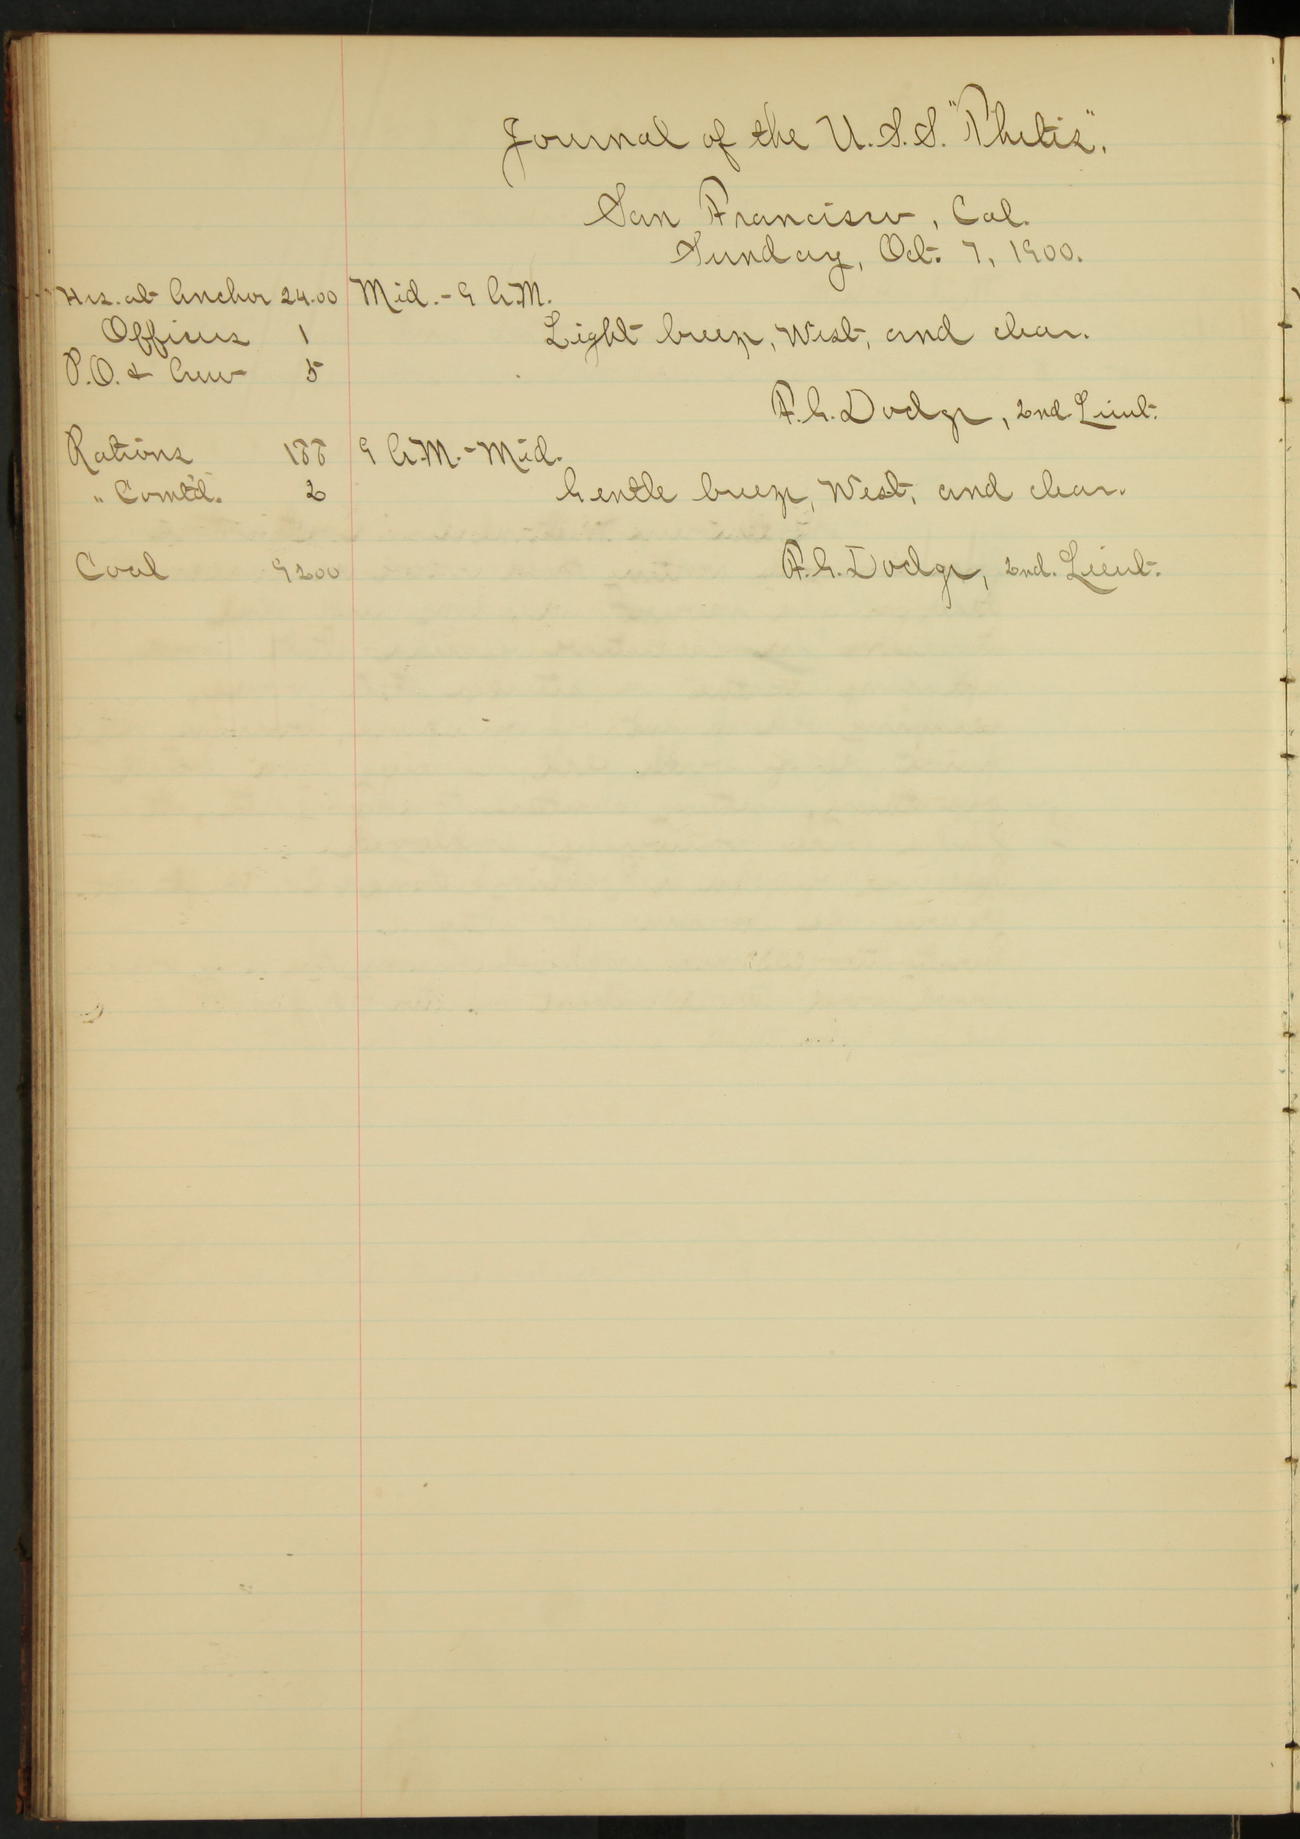 Journal of the U.S.S. "Thetis".
San Francisco, Cal.
Sunday, Oct. 7, 1900.
Hrs. at Anchor 24.00 Mid. - 9 A.M.
Officers 1 Light breeze, West, and clear.
P.O. & Crew 5
F.G. Dodge, 2nd Lieut.
Rations 188 9 A.M. - Mid.
" Com'td. 2 Gentle breeze, West, and clear.
Coal 9200 F.G. Dodge, 2nd. Lieut.